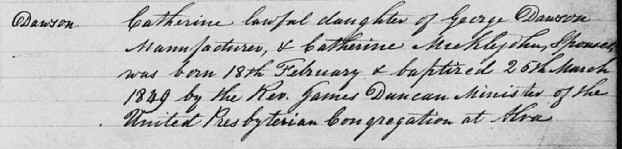 Dawson Catherine lawful daughter of George Dawson
Manufacturer, & Catherine Meeklejohn, Spouses,
was born 18th February & baptized 25th March
1849 by the Rev. James Duncan Minister of the
United Presbyterian Congregation at Alva